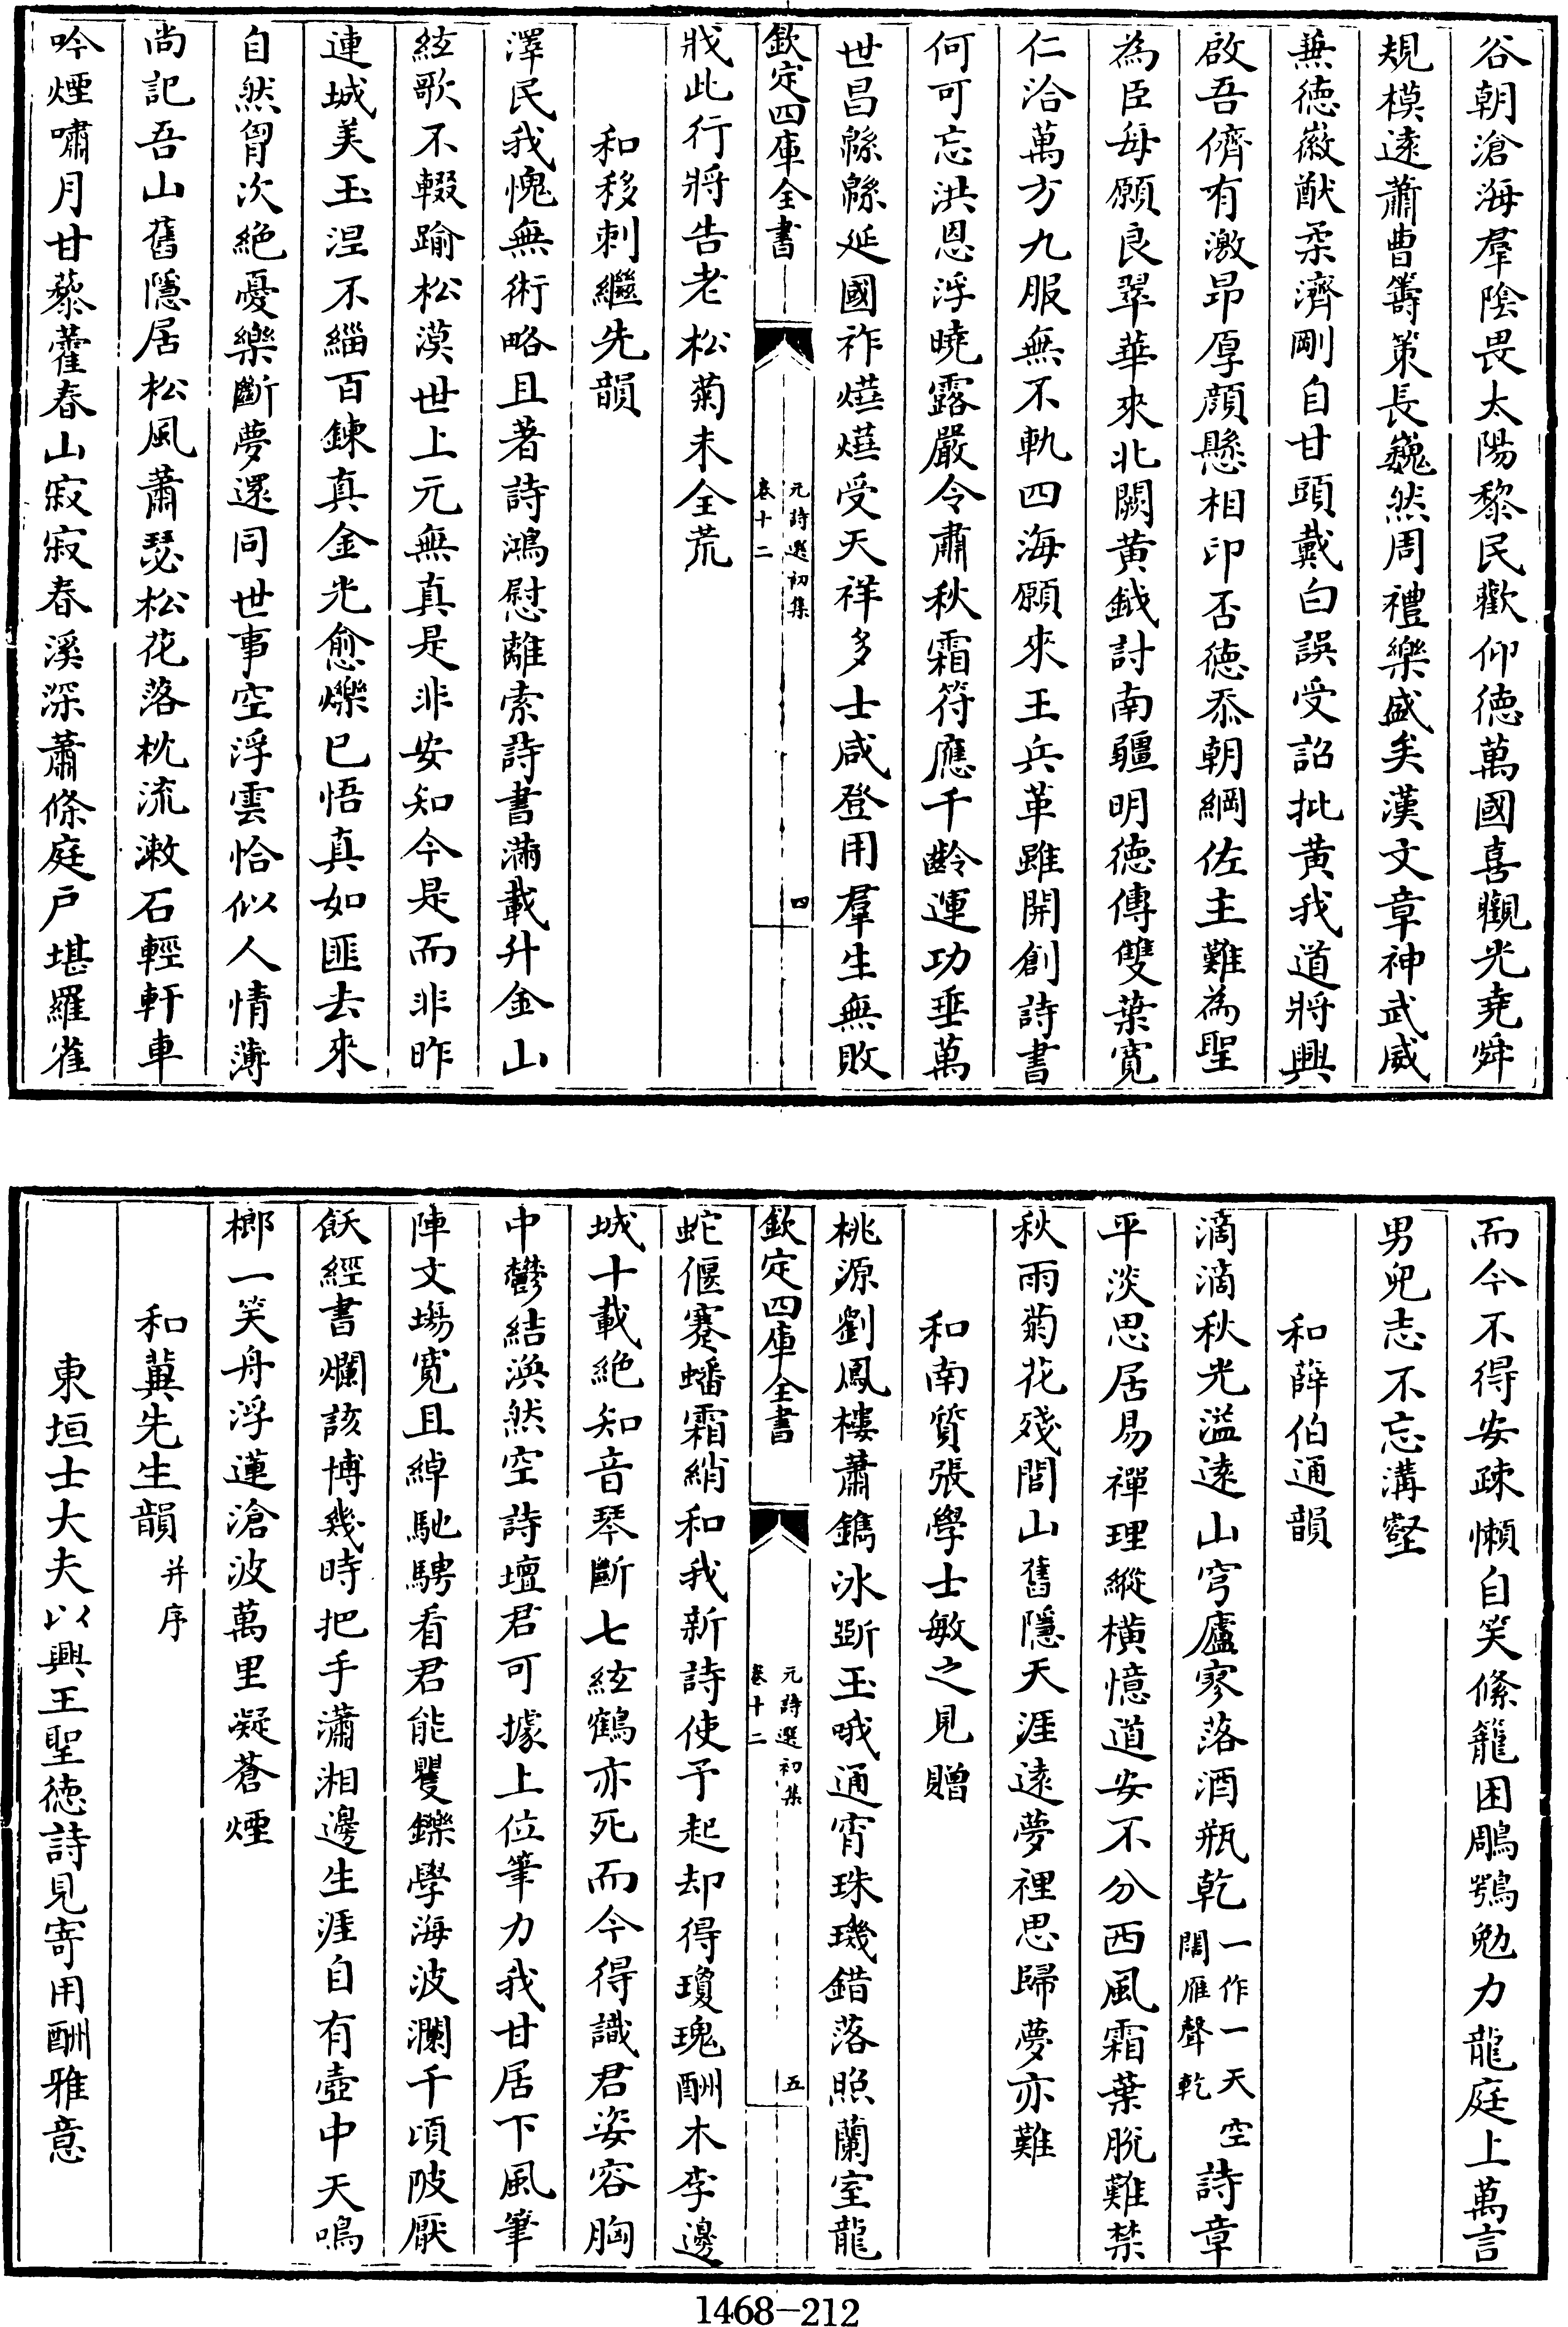 谷朝滄海羣陰畏太陽黎民歡仰德萬國喜觀光堯舜
規模遠蕭曹籌策長巍然周禮樂盛矣漢文章神武威
兼德徽猷柔濟剛自甘頭戴白誤受詔批黃我道將興
啟吾儕有激昂厚顏懸相印否德忝朝綱佐主難為聖
為臣每願良翠華來北闕黃鉞討南疆明德傳雙葉寬
仁洽萬方九服無不軌四海願來王兵革雖開創詩書
何可忘洪恩浮曉露嚴令肅秋霜符應千齡運功垂萬
世昌緜緜延國祚燁燁受天祥多士咸登用羣生無敗
欽定四庫全書
元詩選初集
卷十二
四
戕此行將告老松菊未全荒
和移刺繼先韻
澤民我愧無術略且著詩鴻慰離索詩書滿載升金山
絃歌不輟踰松漠世上元無真是非安知今是而非昨
連城美玉涅不緇百鍊真金光愈爍已悟真如匪去來
自然胷次絕憂樂斷夢還同世事空浮雲恰似人情薄
尚記吾山舊隱居松風蕭瑟松花落枕流漱石輕軒車
吟煙嘯月甘藜藿春山寂寂春溪深蕭條庭戶堪羅雀
而今不得安疎懶自笑絛籠困鵰鶚勉力龍庭上萬言
男兒志不忘溝壑
和薛伯通韻
滴滴秋光溢遠山穹廬寥落酒瓶乾一作一天空闊雁聲乾詩章
平淡思居易禪理縱橫憶道安不分西風霜葉脫難禁
秋雨菊花殘閭山舊隱天涯遠夢裡思歸夢亦難
和南質張學士敏之見贈
桃源劉鳳樓蕭鐫冰斵玉哦通宵珠璣錯落照蘭室龍
欽定四庫全書
元詩選初集
卷十二
五
蛇偃蹇蟠霜綃和我新詩使予起却得瓊瑰酬木李邊
城十載絕知音琴斷七絃鶴亦死而今得識君姿容胸
中鬱結渙然空詩壇君可據上位筆力我甘居下風筆
陣文塲寬且綽馳騁看君能矍鑠學海波瀾千頃陂厭
飫經書爛該博幾時把手瀟湘邊生涯自有壺中天鳴
榔一笑舟浮蓮滄波萬里凝蒼煙
和冀先生韻并序
東垣士大夫以興王聖德詩見寄用酬雅意
1468-212